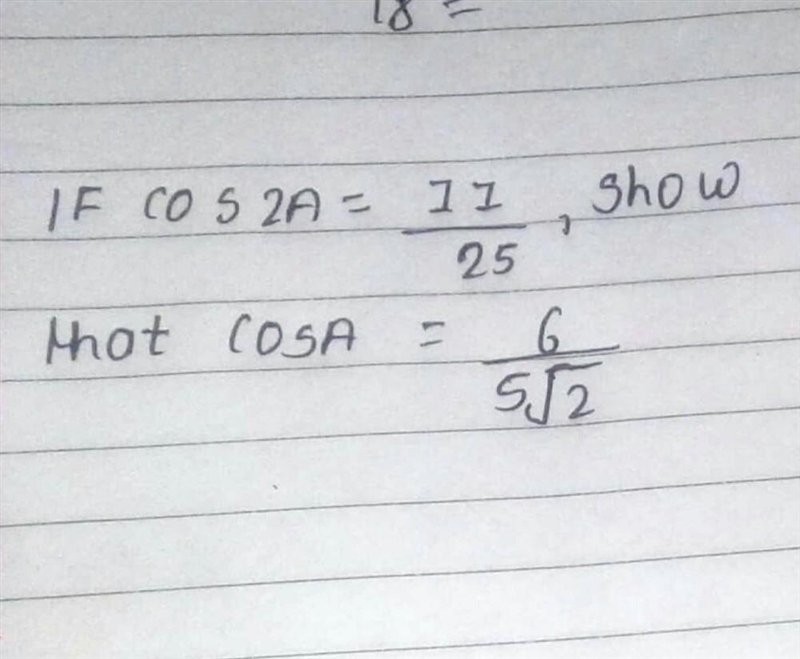 18 =
IF COS 2A = 11/25, show
that COSA = 6/5√2